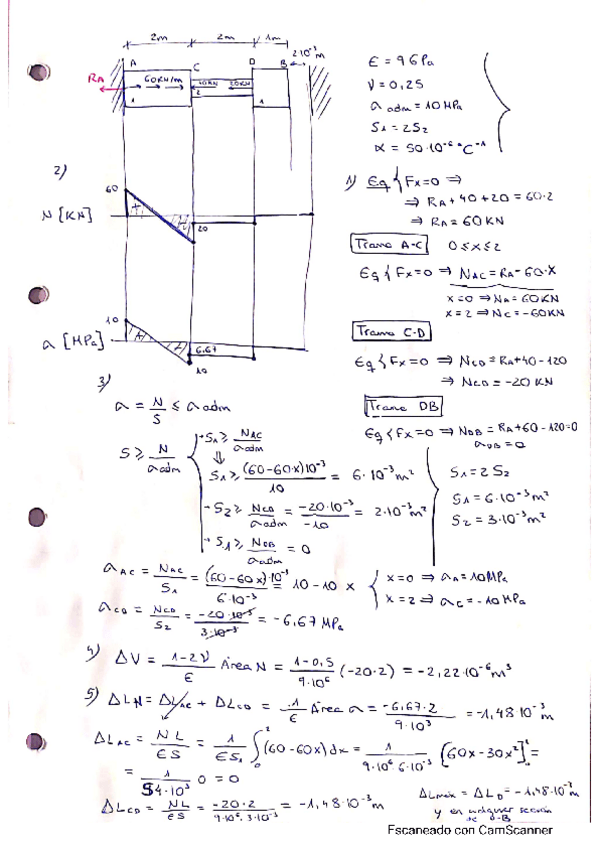 2m 2m 1m
2·10⁻³ m
A C D B
RA 60KN/m 40KN 20KN
1 2 1
E = 9GPa
V = 0,25
σ adm = 10 MPa
S1 = 2S2
α = 50·10⁻⁶ °C⁻¹
2)
60
N [KN]
20
1) Eq { Fx=0 ⇒
⇒ RA + 40 + 20 = 60·2
⇒ RA = 60 KN
Tramo A-C 0≤x≤2
Eq { Fx=0 ⇒ NAC = RA - 60·X
x=0 ⇒ NA = 60KN
x=2 ⇒ NC = -60KN
10
σ [MPa]
6,67
10
Tramo C-D
Eq { Fx=0 ⇒ NCD = RA+40-120
⇒ NCD = -20 KN
Tramo DB
Eq { Fx=0 ⇒ NDB = RA+60-120=0
σDB = 0
3)
σ = N/S ≤ σ adm
S ≥ N/σadm
S1 ≥ NAC/σadm
⇓
S1 ≥ (60-60x)10⁻³/10 = 6·10⁻³ m²
S2 ≥ NCD/σadm = -20·10⁻³/-10 = 2·10⁻³ m²
S1 ≥ NDB/σadm = 0
S1 = 2 S2
S1 = 6·10⁻³ m²
S2 = 3·10⁻³ m²
σAC = NAC/S1 = (60-60x)·10⁻³/6·10⁻³ = 10 - 10 x { x=0 ⇒ σA = 10MPa
x=2 ⇒ σC = -10 MPa
σCD = NCD/S2 = -20·10⁻³/3·10⁻³ = -6,67 MPa
4) ΔV = 1-2V/E Área N = 1-0,5/9·10⁶ (-20·2) = -2,22·10⁻⁶ m³
5) ΔLN = ΔLAC + ΔLCD = 1/E Área σ = -6,67·2/9·10³ = -1,48·10⁻³ m
ΔLAC = NL/ES = 1/ES1 ∫₀² (60-60x)dx = 1/9·10⁶ 6·10⁻³ [60x-30x²]² =
= 1/54·10³ 0 = 0
ΔLCD = NL/ES = -20·2/9·10⁶·3·10⁻³ = -1,48·10⁻³ m
ΔLmáx = ΔLD = -1,48·10⁻³ m
y en cualquier sección
de D-B
Escaneado con CamScanner